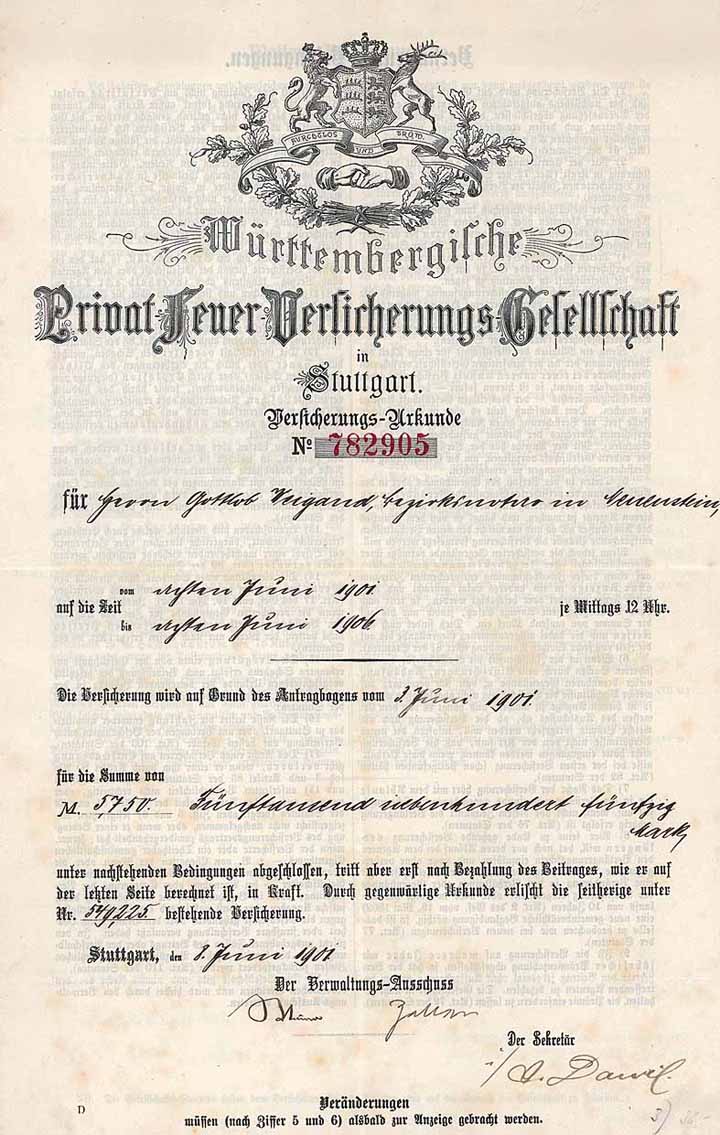 FURCHTLOS UND TREW.
Württembergische
Privat-Feuer-Versicherungs-Gesellschaft
in
Stuttgart.
Versicherungs-Urkunde
No 782905
für Herrn Gottlob Weigand, Bezirksnotar in Neuenstein,
vom achten Juni 1901
auf die Zeit je Mittags 12 Uhr.
bis achten Juni 1906.
Die Versicherung wird auf Grund des Antragbogens vom 3. Juni 1901.
für die Summe von
M. 5,750. Fünftausend siebenhundert fünfzig
Mark,
unter nachstehenden Bedingungen abgeschlossen, tritt aber erst nach Bezahlung des Beitrages, wie er auf
der letzten Seite berechnet ist, in Kraft. Durch gegenwärtige Urkunde erlischt die seitherige unter
Nr. 549,225 bestehende Versicherung.
Stuttgart, den 8. Juni 1901
Der Verwaltungs-Ausschuss
Der Sekretär
D
Veränderungen
müssen (nach Ziffer 5 und 6) alsbald zur Anzeige gebracht werden.